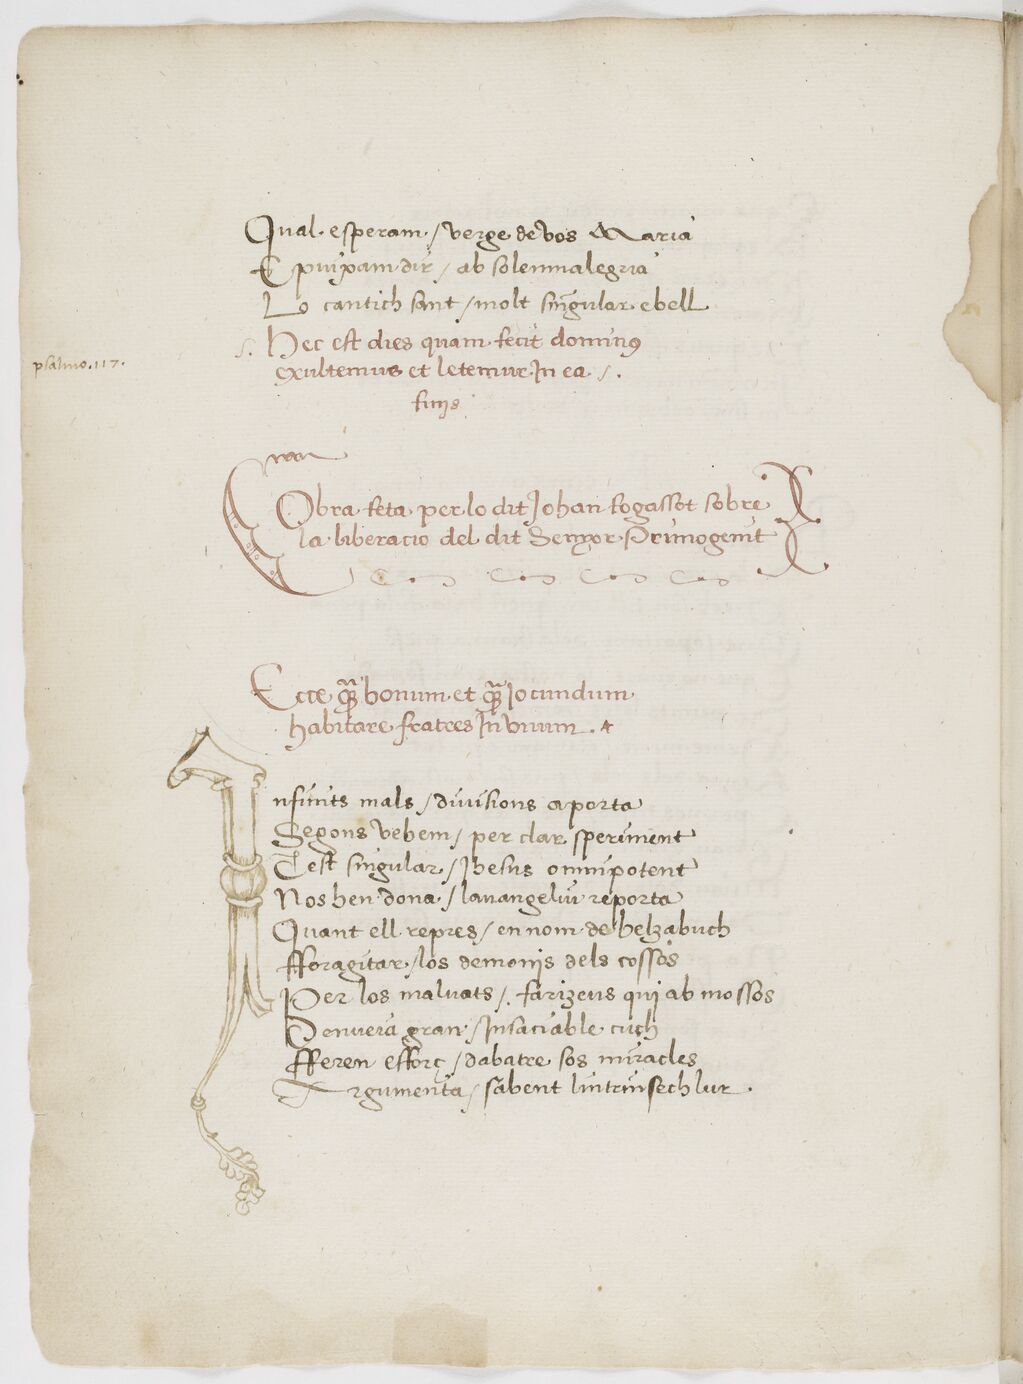 Qual esperam / verge de vos Maria
E puixam dir / ab solemna legria
Lo cantich sant / molt singular e bell
psalmo. 117.
S. Hec est dies quam fecit dominus
exultemus et letemur In ea /.
finis
Obra feta per lo dit Johan fogassot sobre
la liberacio del dit Senyor Primogenit
Ecce qm bonum et qm Jocundum
habitare fratres In unum.
Infinits mals / divisions aporta
Segons vehem / per clar speriment
Test singular / Jhesus omnipotent
Nos hen dona / lavangelin reporta
Quant ell repres / en nom de belzabuch
fforagitar / los demonis dels cossos
Per los malvats /. farizeus qui ab mossos
Denveia gran / Insaciable cuch
fferen efforç / dabatre sos miracles
Argumenta / sabent lintrinsech lur.